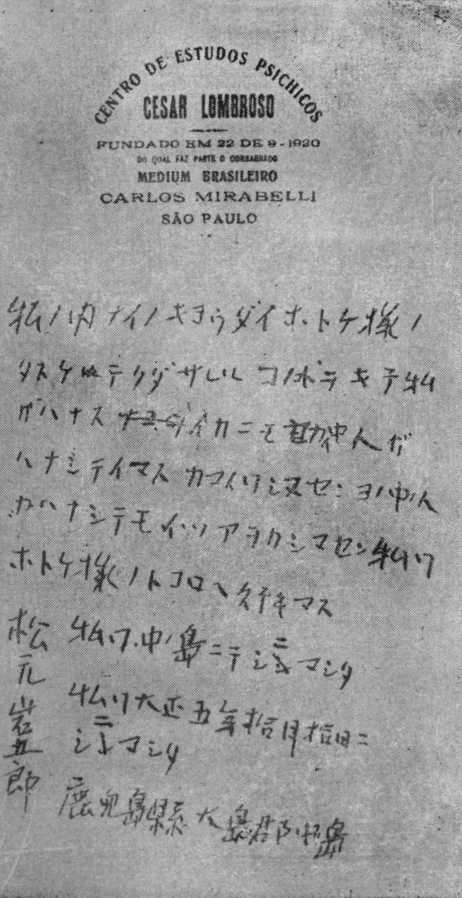 CENTRO DE ESTUDOS PSICHICOS
CESAR LOMBROSO
FUNDADO EM 22 DE 9-1920
DO QUAL FAZ PARTE O CONSAGRADO
MEDIUM BRASILEIRO
CARLOS MIRABELLI
SÃO PAULO
私ノ内ナイノキヨウダイホトケ様ノ
タスケ テクダサレル キテ私
ガハナス イカニモ 人ガ
ハナシテイマス カマイワシマセン ヨノ中ノ人
ガハナシテモ アラカシマセン私ワ
ホトケ様ノトコロヘ マス
私ワ中ノ島ニテシニマシタ
私ワ大正五年拾月拾日ニ
シニマシタ
鹿児島縣大島郡 島
松元岩五郎